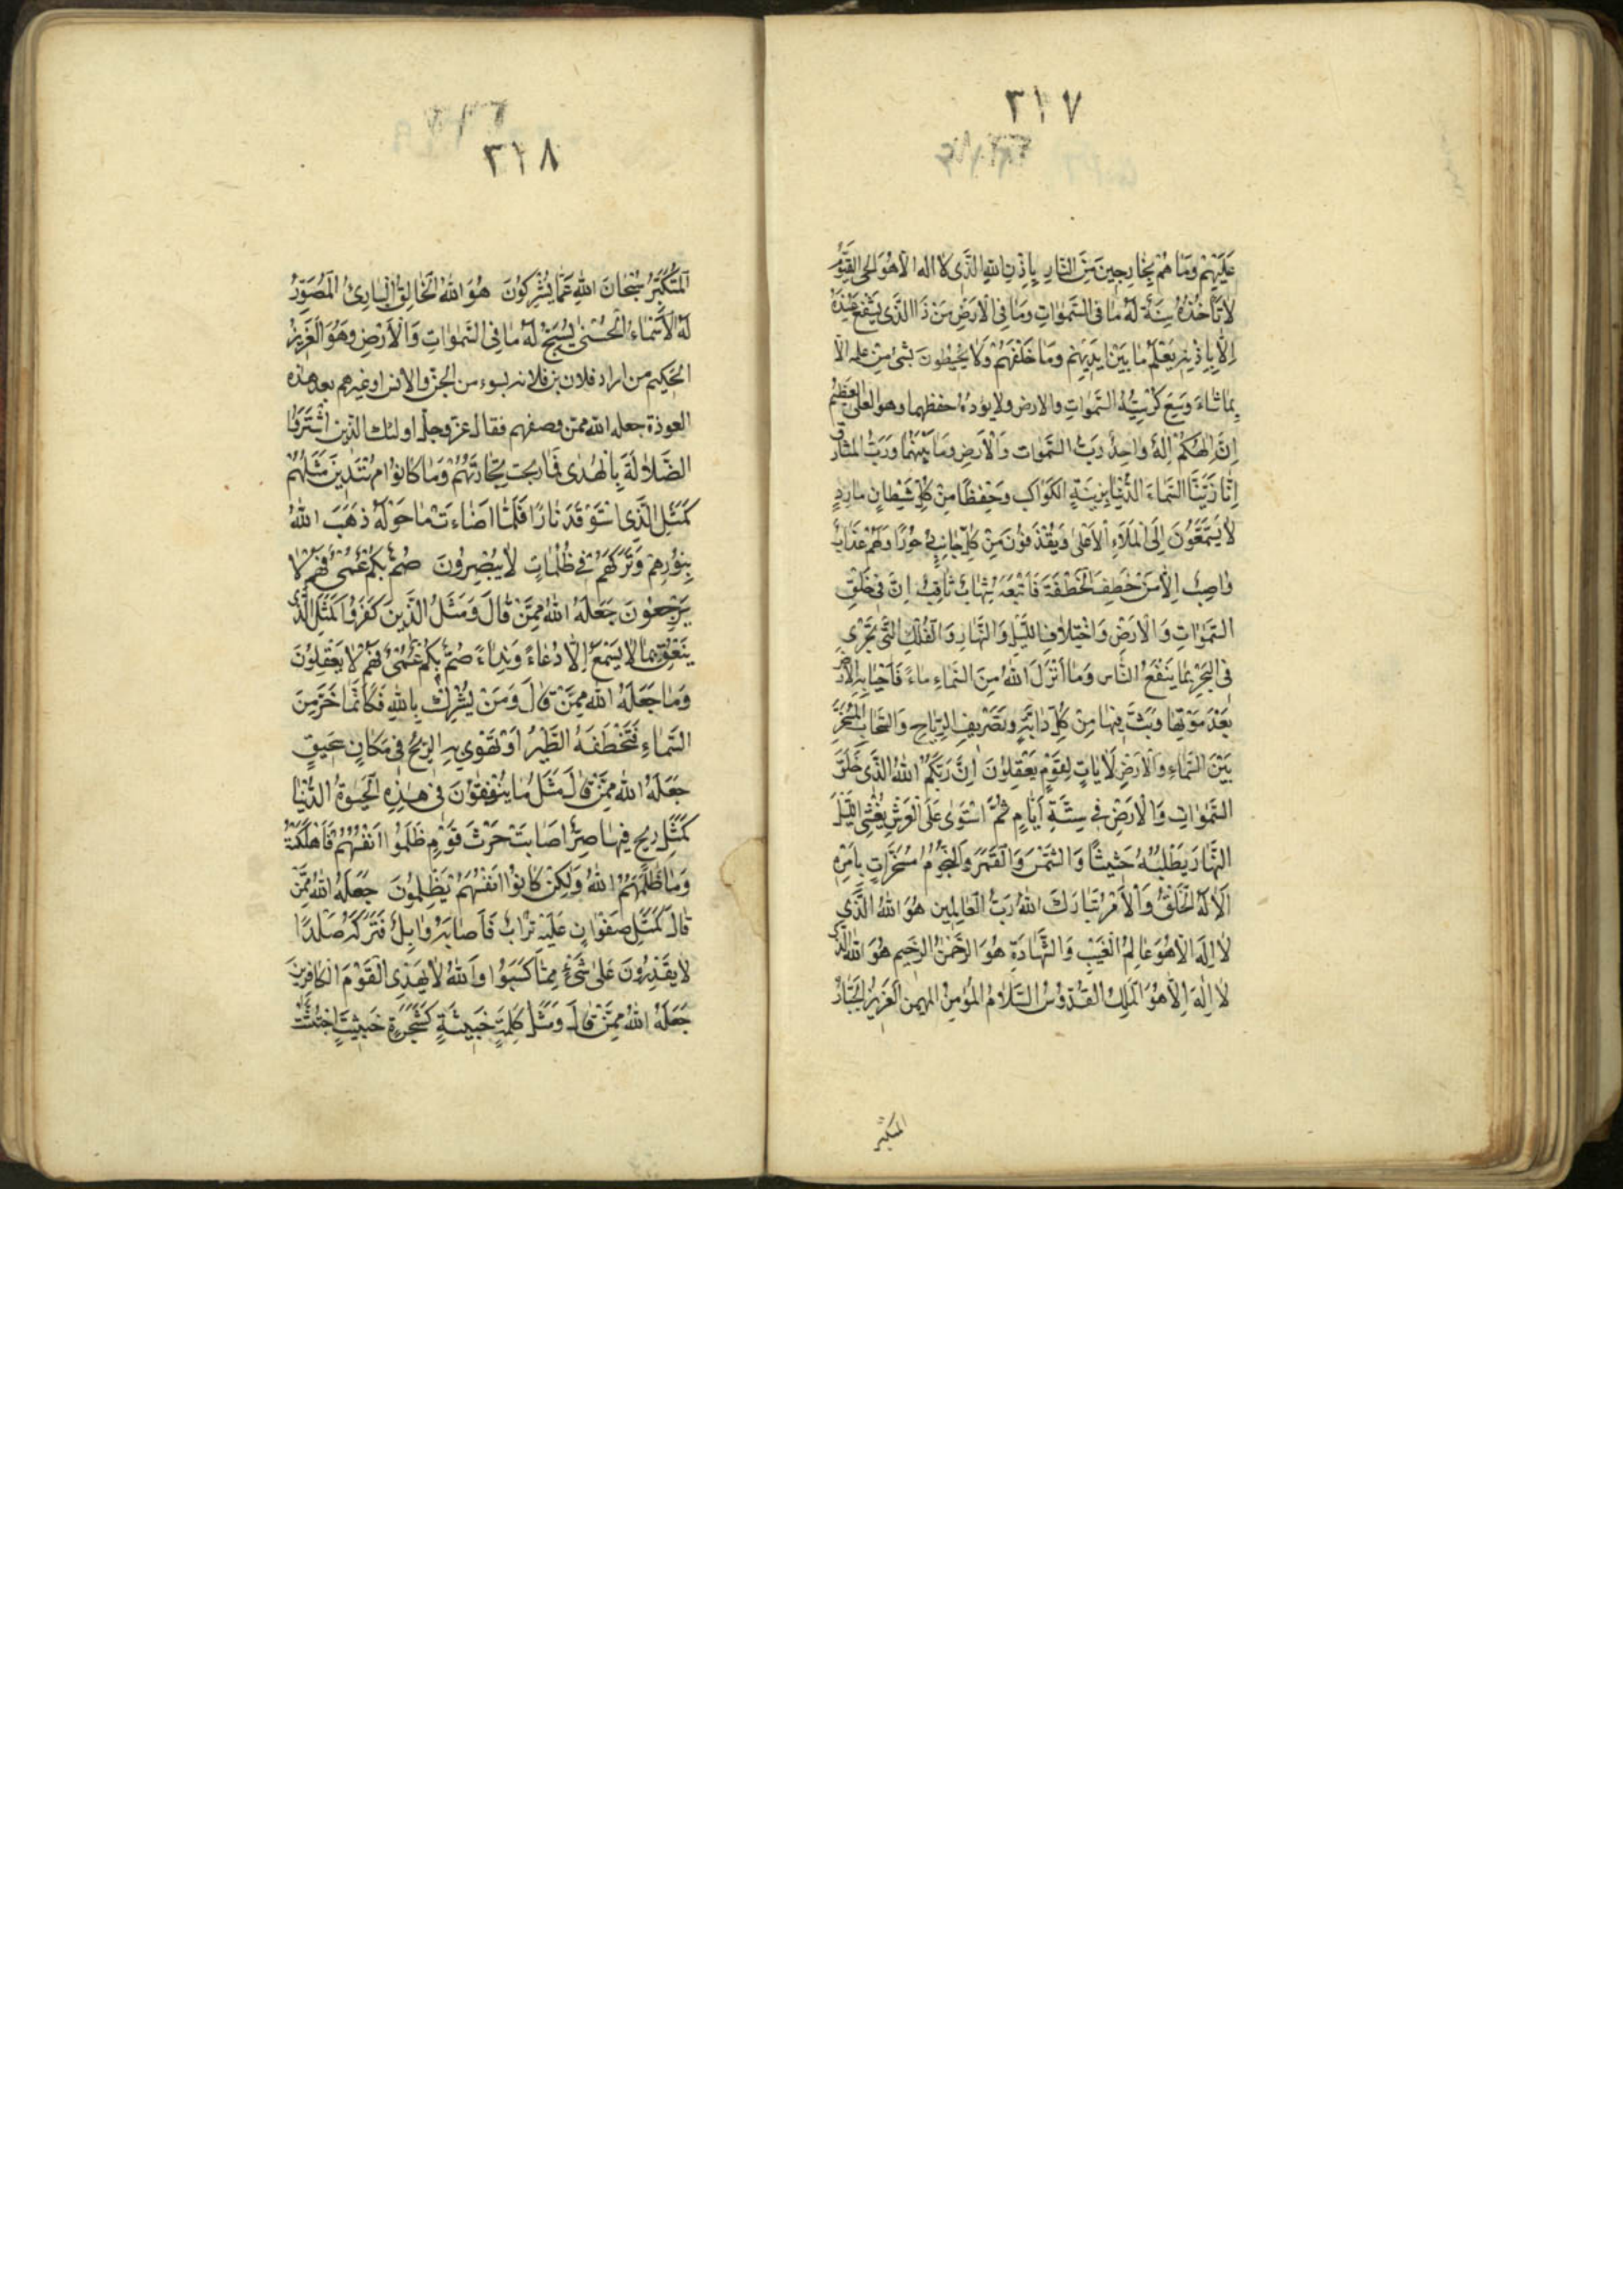 ٣١٧
عَلَيْهِمْ وَمَا هُمْ بِخَارِجِينَ مِنَ النَّارِ بِاِذْنِ اللهِ الَّذِى لَا اله الاهُوَ الحى القَيُّومُ
لَا تَأْخُذُهُ سِنَةٌ لَهُ مَا فِى السَّمٰوَاتِ وَمَا فِى الْاَرْضِ مَنْ ذَا الَّذِى يَشْفَعُ عِنْدَهُ
اِلَّا بِاِذْنِهِ يَعْلَمُ مَا بَيْنَ اَيْدِيهِمْ وَمَا خَلْفَهُمْ وَلَا يُحِيطُونَ بشَىْءٍ مِنْ علمه الا
بِمَا شَاءَ وَسِعَ كُرْسِيُّهُ السَّمٰوَاتِ والارض ولا يؤدهُ حفظهما وهو العلى العَظِيمُ
اِنَّ اِلٰهَكُمْ اِلٰهٌ وَاحِدٌ رَبُّ السَّمٰوَات وَالْاَرْضِ وَمَا بَيْنَهُمَا وَرَبُّ المَشَارِق
اِنَّا زَيَّنَّا السَّمَاءَ الدُّنْيَا بِزِينَةٍ الكَوَاكِب وَحِفْظًا مِنْ كُلِّ شَيْطَانٍ مَارِدٍ
لَا يَسَّمَّعُونَ اِلَى الْمَلَاءِ الْاَعْلٰى وَيُقْذَفُونَ مِنْ كُلِّ جَانِبٍ دُحُورًا وَلَهُمْ عَذَابٌ
وَاصِبٌ اِلَّا مَنْ خَطِفَ الْخَطْفَةَ فَاَتْبَعَهُ شِهَابٌ ثَاقِبٌ اِنَّ فِى خَلْقِ
السَّمٰوَاتِ وَالْاَرْضِ وَاخْتِلَافِ اللَّيْلِ وَالنَّهَارِ وَالْفُلْكِ الَّتِى تَجْرِى
فِى البَحْرِ بِمَا يَنْفَعُ النَّاس وَمَا اَنْزَلَ اللهُ مِنَ السَّمَاءِ مَاءً فَاَحْيَا بِهِ الْاَرْضَ
بَعْدَ مَوْتِهَا وَبَثَّ فِيهَا مِنْ كُلِّ دَابَّةٍ وَتَصْرِيفِ الرِّيَاحِ وَالسَّحَابِ الْمُسَخَّرِ
بَيْنَ السَّمَاءِ وَالْاَرْضِ لَاٰيَاتٍ لِقَوْمٍ يَعْقِلُونَ اِنَّ رَبَّكُمُ اللهُ الَّذِى خَلَقَ
السَّمٰوَاتِ وَالْاَرْضَ فِى سِتَّةِ اَيَّامٍ ثُمَّ اسْتَوٰى عَلَى الْعَرْشِ يُغْشِى اللَّيْلَ
النَّهَارَ يَطْلُبُهُ حَثِيثًا وَالشَّمْسَ وَالْقَمَرَ وَالنُّجُومَ مُسَخَّرَاتٍ بِاَمْرِهِ
اَلَا لَهُ الْخَلْقُ وَالْاَمْرُ تَبَارَكَ اللهُ رَبُّ الْعَالَمِين هُوَ اللهُ الَّذِى
لَا اِلٰهَ اِلَّا هُوَ عَالِمُ الْغَيْبِ وَالشَّهَادَةِ هُوَ الرَّحْمٰنُ الرَّحِيم هُوَ اللهُ الَّذِى
لَا اِلٰهَ اِلَّا هُوَ الْمَلِكُ القُدُّوسُ السَّلَامُ المُؤْمِنُ المهيمن الْعَزِيزُ الْجَبَّارُ
المتكبر
٣١٨
الْمُتَكَبِّرُ سُبْحَانَ اللهِ عَمَّا يُشْرِكُونَ هُوَ اللهُ الْخَالِقُ الْبَارِئُ الْمُصَوِّرُ
لَهُ الْاَسْمَاءُ الْحُسْنٰى يُسَبِّحُ لَهُ مَا فِى السَّمٰوَاتِ وَالْاَرْضِ وَهُوَ الْعَزِيزُ
الْحَكِيمُ من اراد فلان بن فلانه بسوء من الجن والانس او غيرهم بعد هذه
العوذة جعله الله ممن وصفهم فقال عز وجل اولئك الَّذِين اشْتَرَوُا
الضَّلَالَةَ بِالْهُدٰى فَمَا رَبِحَت تِجَارَتُهُمْ وَمَا كَانُوا مُهْتَدِينَ مَثَلُهُمْ
كَمَثَلِ الَّذِى اسْتَوْقَدَ نَارًا فَلَمَّا اَضَاءَتْ مَا حَوْلَهُ ذَهَبَ اللهُ
بِنُورِهِمْ وَتَرَكَهُمْ فِى ظُلُمَاتٍ لَا يُبْصِرُونَ صُمٌّ بُكْمٌ عُمْىٌ فَهُمْ لَا
يَرْجِعُونَ جَعَلَهُ اللهُ مِمَّنْ قَالَ وَمَثَلُ الَّذِينَ كَفَرُوا كَمَثَلِ الَّذِى
يَنْعِقُ بِمَا لَا يَسْمَعُ اِلَّا دُعَاءً وَنِدَاءً صُمٌّ بُكْمٌ عُمْىٌ فَهُمْ لَا يَعْقِلُونَ
وَمَا جَعَلَهُ اللهُ مِمَّنْ قَالَ وَمَنْ يُشْرِكْ بِاللهِ فَكَاَنَّمَا خَرَّ مِنَ
السَّمَاءِ فَتَخْطَفُهُ الطَّيْرُ اَوْ تَهْوِى بِهِ الرِّيحُ فِى مَكَانٍ سَحِيقٍ
جَعَلَهُ اللهُ مِمَّنْ قَالَ مَثَلُ مَا يُنْفِقُونَ فِى هٰذِهِ الْحَيٰوةِ الدُّنْيَا
كَمَثَلِ رِيحٍ فِيهَا صِرٌّ اَصَابَتْ حَرْثَ قَوْمٍ ظَلَمُوا اَنْفُسَهُمْ فَاَهْلَكَتْهُ
وَمَا ظَلَمَهُمُ اللهُ وَلٰكِنْ كَانُوا اَنْفُسَهُمْ يَظْلِمُونَ جَعَلَهُ اللهُ مِمَّنْ
قَالَ كَمَثَلِ صَفْوَانٍ عَلَيْهِ تُرَابٌ فَاَصَابَهُ وَابِلٌ فَتَرَكَهُ صَلْدًا
لَا يَقْدِرُونَ عَلٰى شَىْءٍ مِمَّا كَسَبُوا وَاللهُ لَا يَهْدِى الْقَوْمَ الْكَافِرِينَ
جَعَلَهُ اللهُ مِمَّنْ قَالَ وَمَثَلُ كَلِمَةٍ خَبِيثَةٍ كَشَجَرَةٍ خَبِيثَةٍ اجْتُثَّتْ